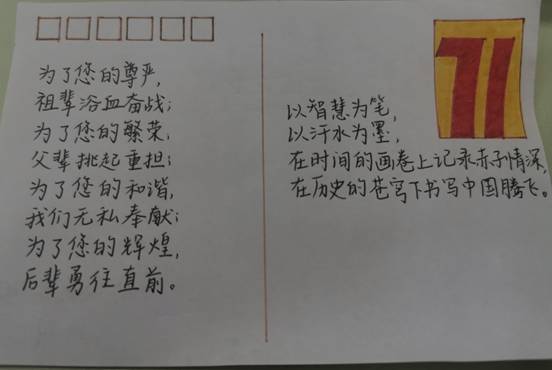 为了您的尊严，
祖辈浴血奋战；
为了您的繁荣，
父辈挑起重担；
为了您的和谐，
我们无私奉献；
为了您的辉煌，
后辈勇往直前。
71
以智慧为笔，
以汗水为墨，
在时间的画卷上记录赤子情深，
在历史的苍穹下书写中国腾飞。